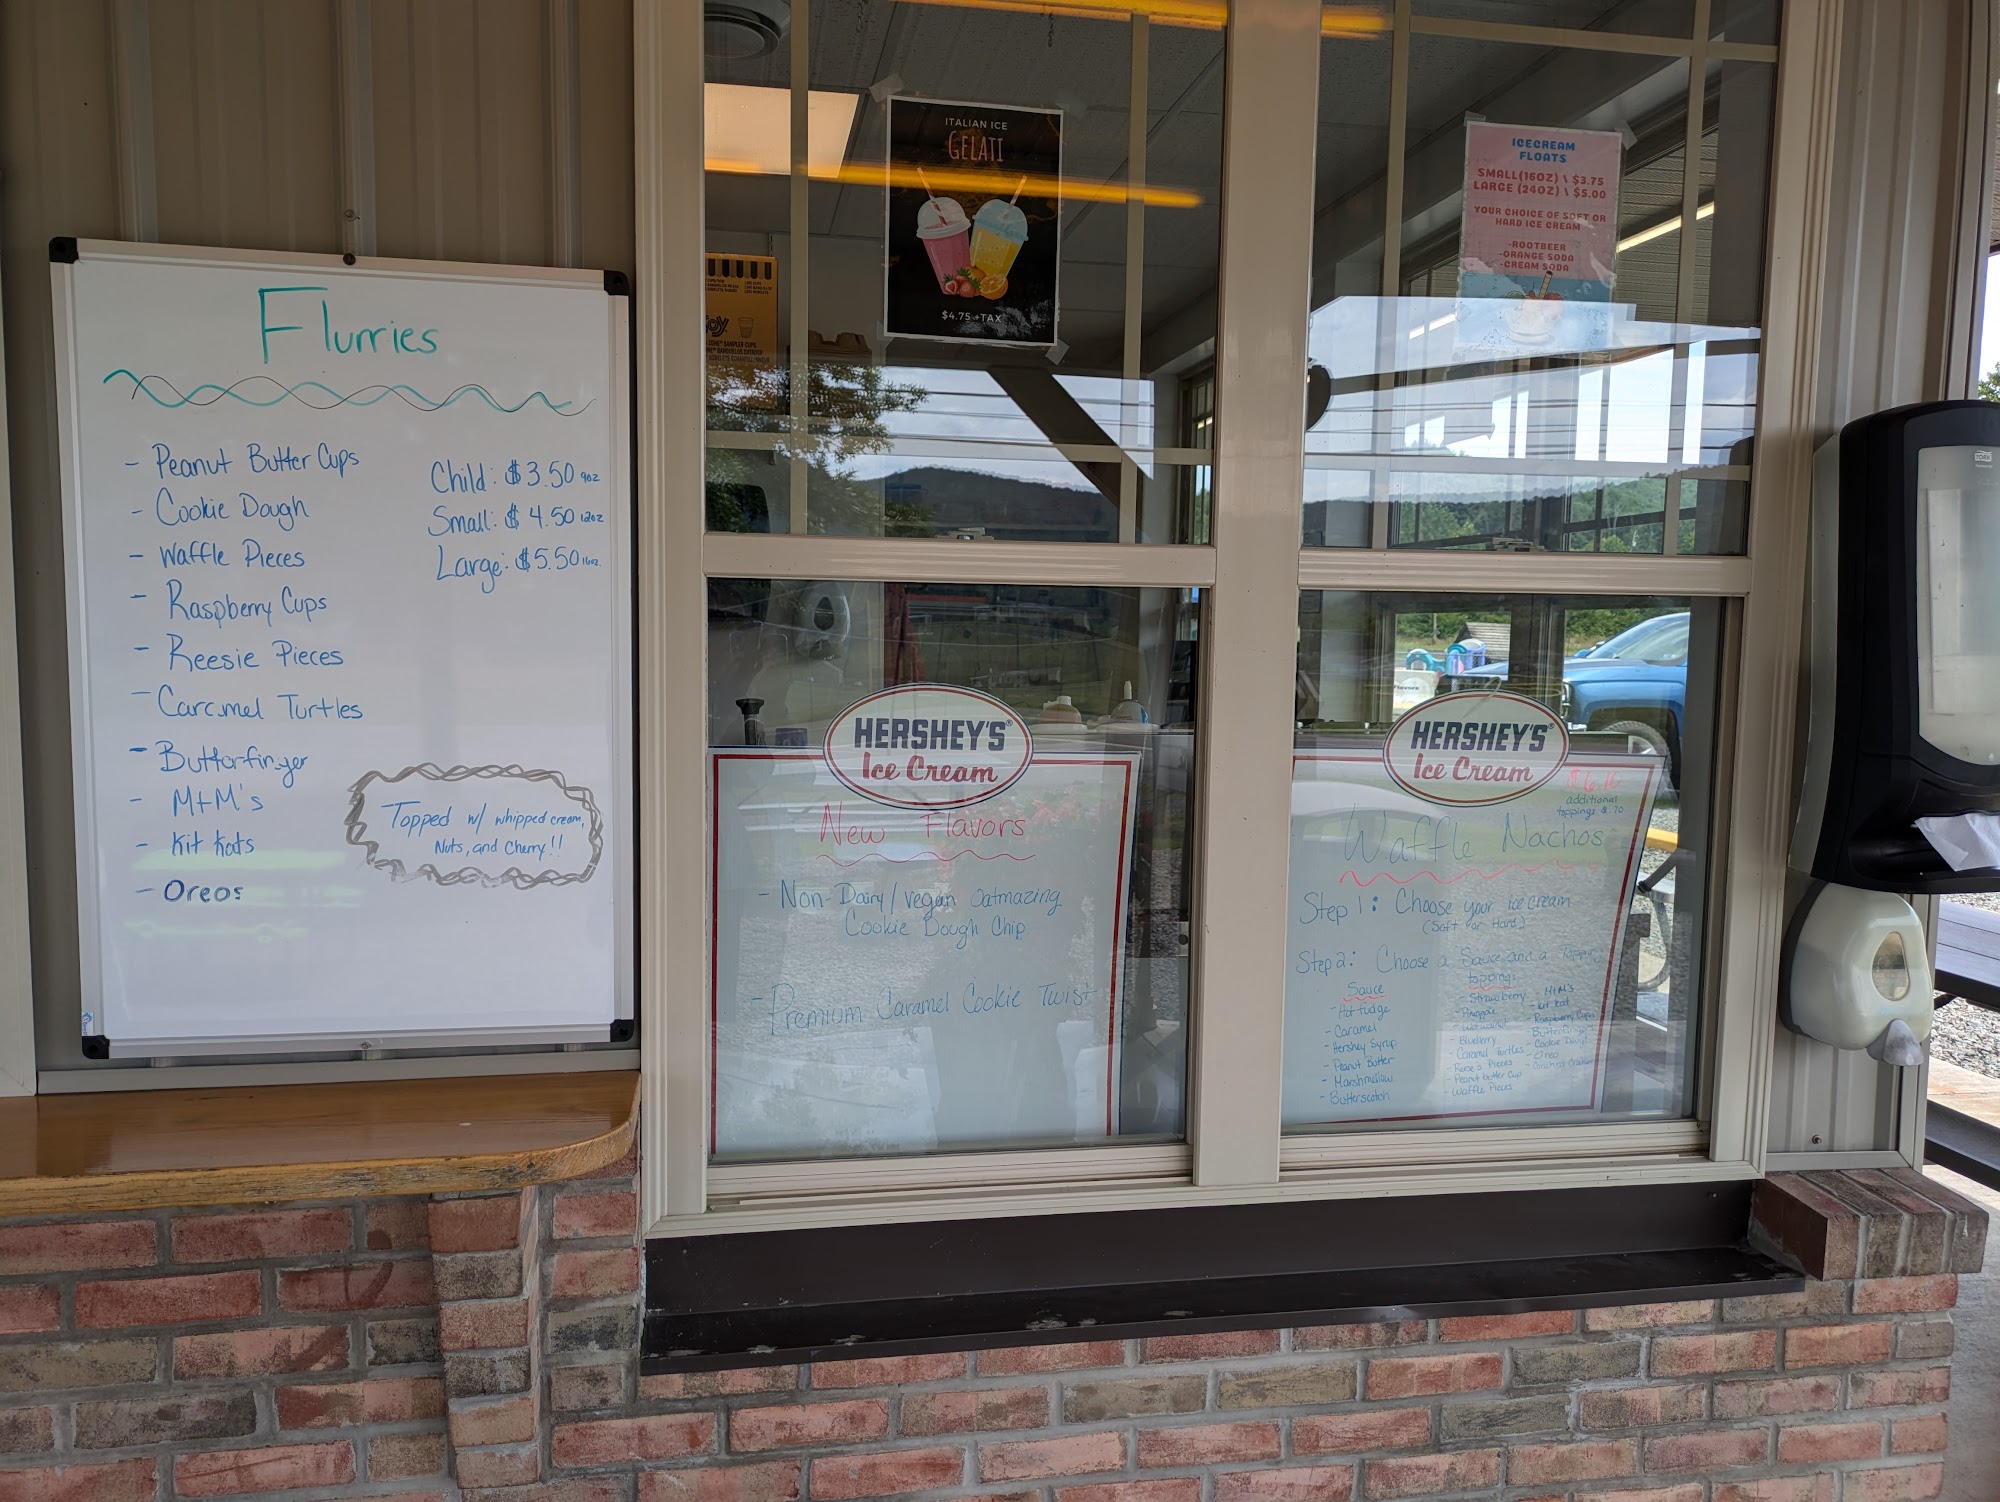 Flurries
- Peanut Butter Cups
- Cookie Dough
- Waffle Pieces
- Raspberry Cups
- Reesie Pieces
- Caramel Turtles
- Butterfinger
- M+M's
- Kit Kats
- Oreos
Child: $3.50 9oz
Small: $4.50 12oz
Large: $5.50 16oz.
Topped w/ whipped cream,
Nuts, and Cherry!!
ITALIAN ICE
GELATI
$4.75 +TAX
SAMPLER CUPS
ICECREAM
FLOATS
SMALL(16OZ) \ $3.75
LARGE (24OZ) \ $5.00
YOUR CHOICE OF SOFT OR
HARD ICE CREAM
-ROOTBEER
-ORANGE SODA
-CREAM SODA
HERSHEY'S®
Ice Cream
New Flavors
- Non-Dairy/vegan Oatmazing
Cookie Dough Chip
- Premium Caramel Cookie Twist
HERSHEY'S®
Ice Cream
additional
toppings $.70
Waffle Nachos
Step 1: Choose your ice cream
(Soft or Hard)
Step 2: Choose a Sauce and a Topping
Sauce
- Hot fudge
- Caramel
- Hershey Syrup
- Peanut Butter
- Marshmellow
- Butterscotch
toppings
- Strawberry
- Pineapple
- Wet walnut
- Blueberry
- Caramel Turtles
- Reese's Pieces
- Peanut butter Cup
- Waffle Pieces
- M+M's
- Kit Kat
- Raspberry Cups
- Butterfinger
- Cookie Dough
- Oreo
- Graham Cracker
TORK